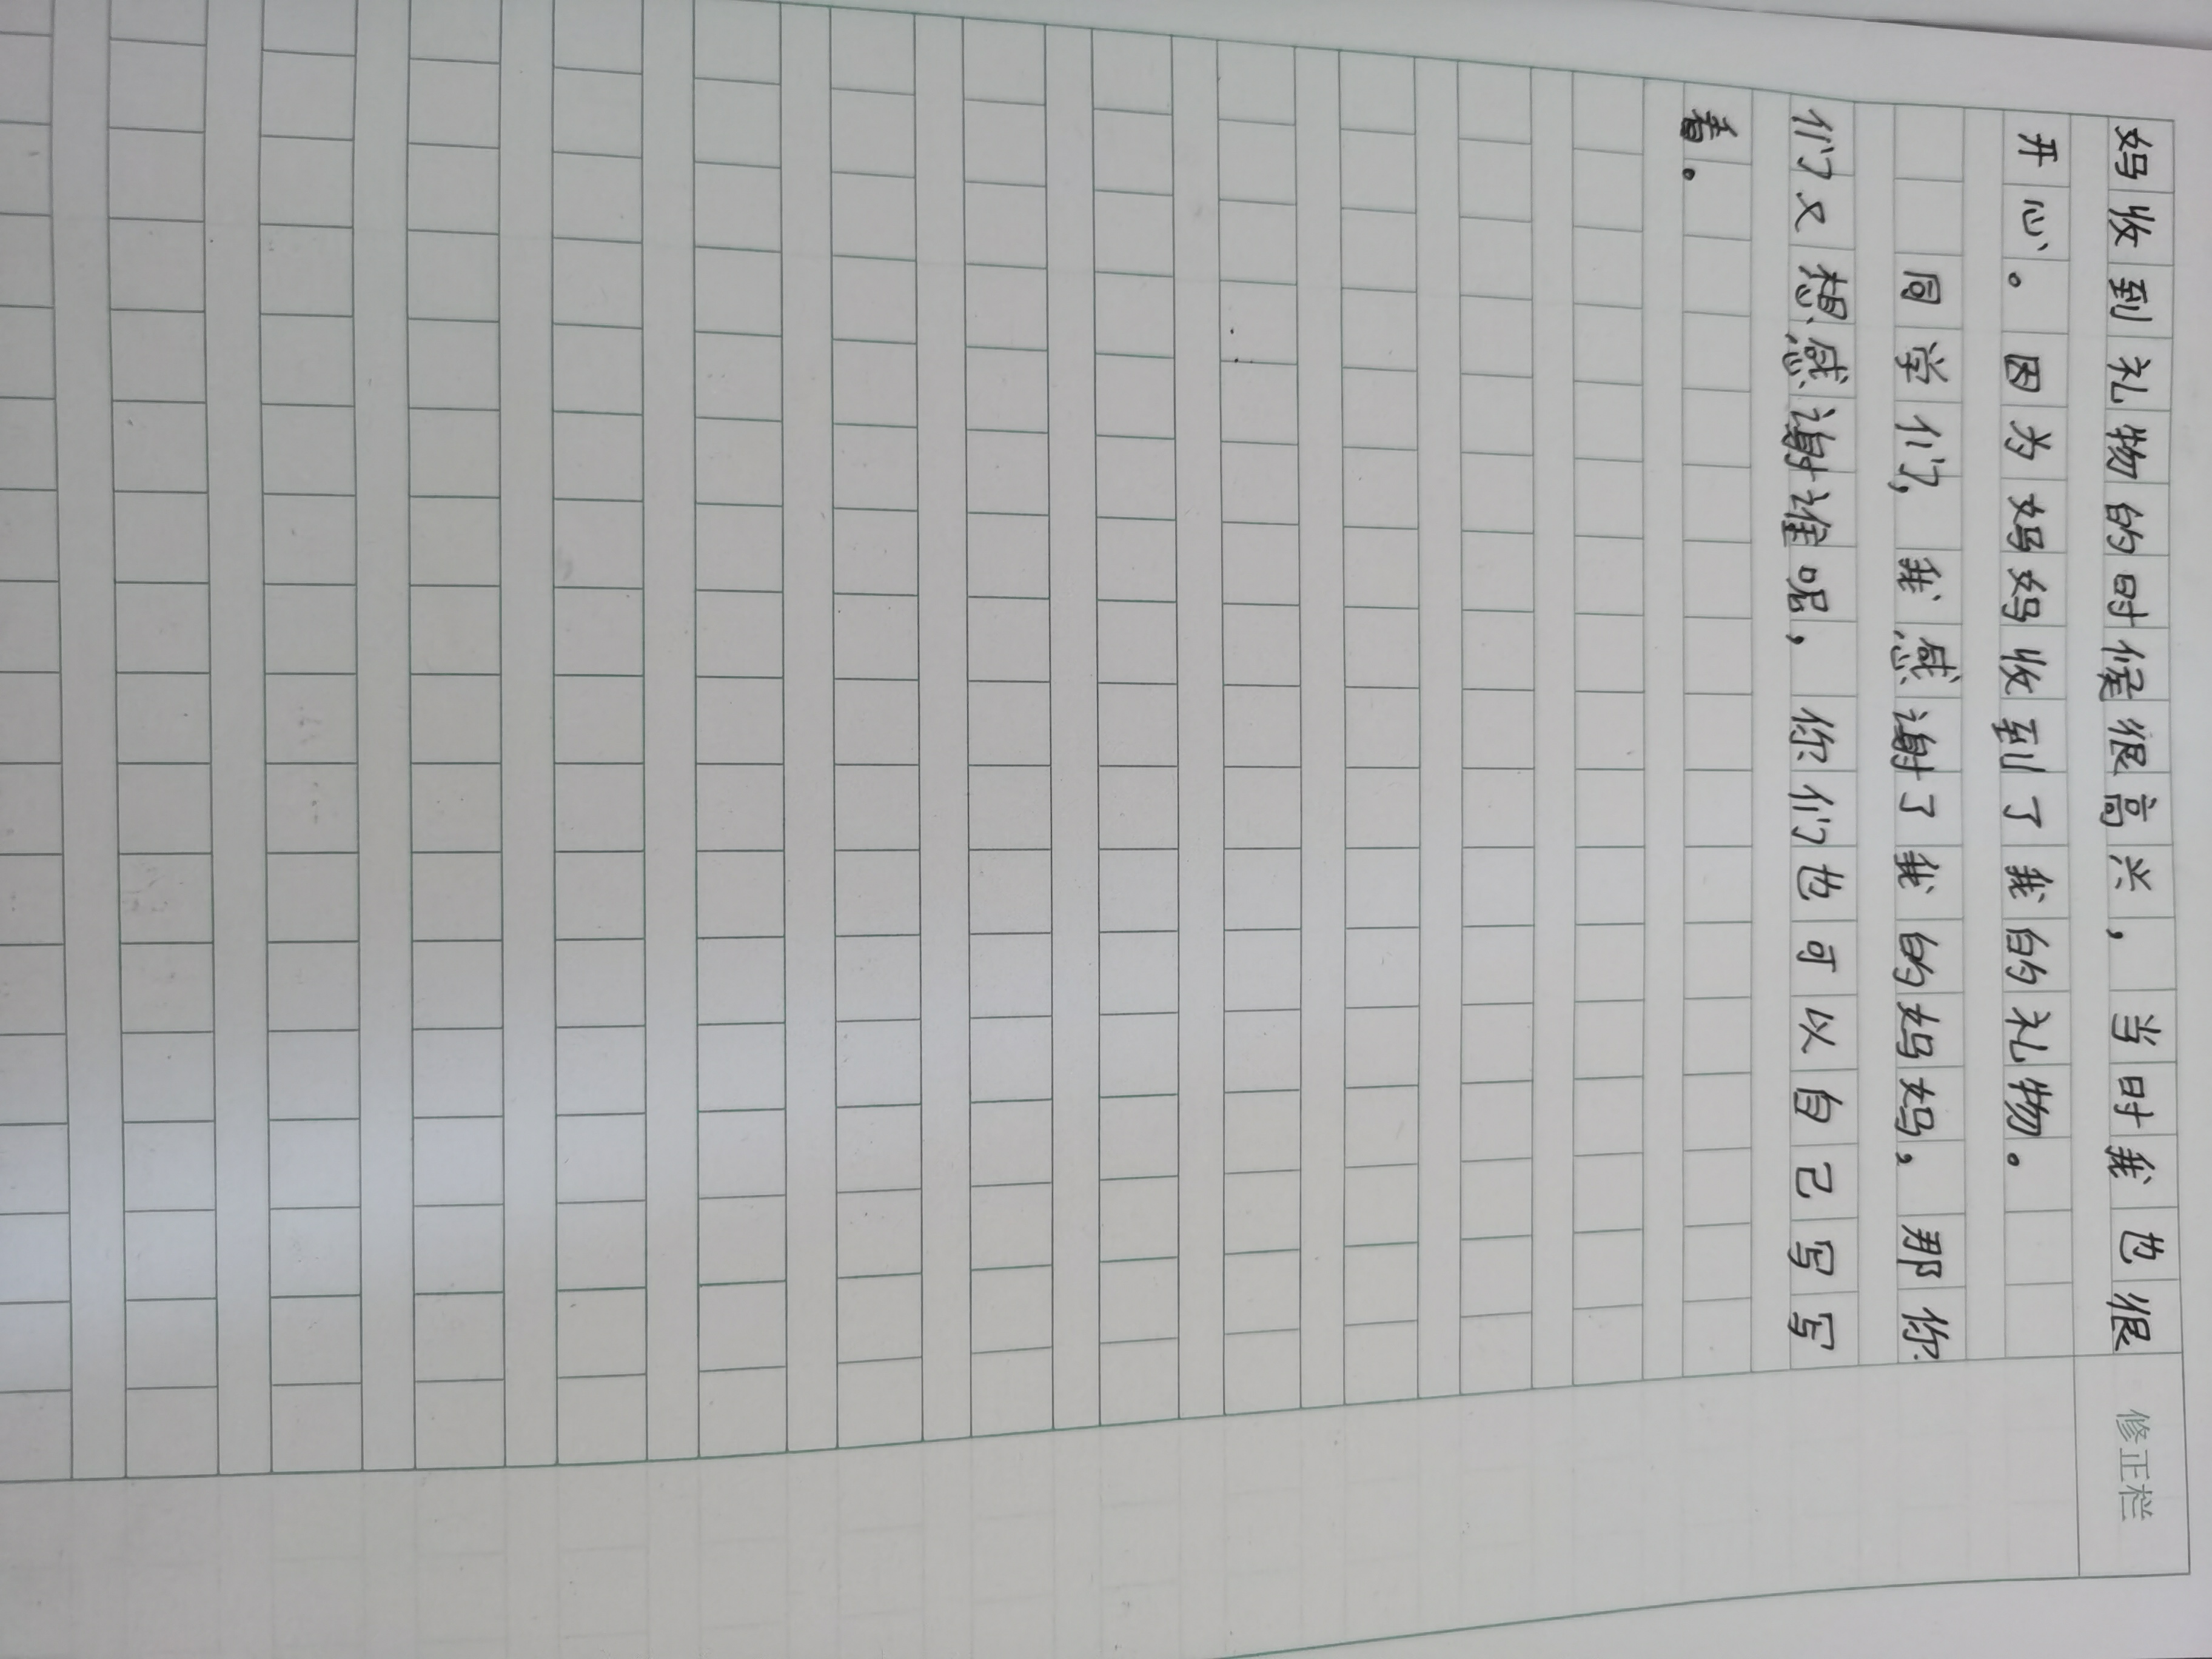 妈收到礼物的时候很高兴，当时我也很
开心。因为妈妈收到了我的礼物。
同学们，我感谢了我的妈妈，那你
们又想感谢谁呢，你们也可以自己写写
看。
修正栏